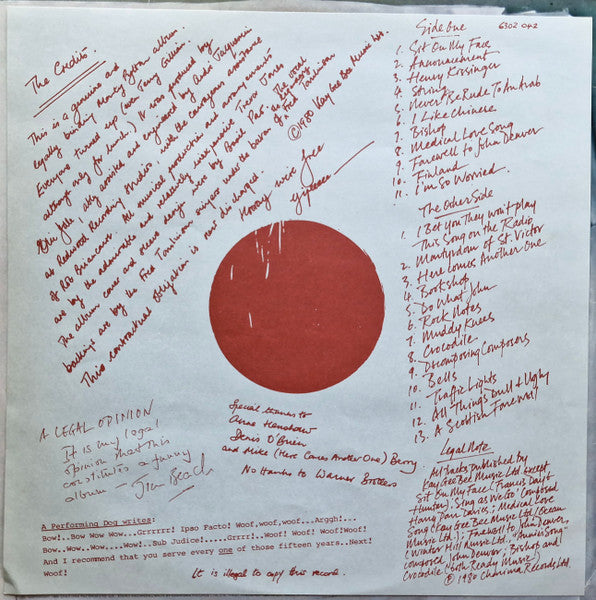 The Credits.
This is a genuine and
legally binding Monty Python album.
Everyone turned up (even Terry Gilliam
although only for lunch.) It was produced by
Eric Idle, ably assisted and engineered by André Jacquemin
at Redwood Recording Studios, with the courageous assistance
of Rob Brierance. All musical production and arrangements
are by the admirable and relatively inexpensive Trevor Jones
The album cover and sleeve design are by Basil Pao. The vocal
backings are by the Fred Tomlinson singers under the baton of Fred Tomlinson
This contractual obligation is now discharged.
Hooray we're free
©1980 Kay Gee Bee Music Ltd.
Side One
6302 042
1. Sit On My Face
2. Announcement
3. Henry Kissinger
4. String
5. Never Be Rude To An Arab
6. I Like Chinese
7. Bishop
8. Medical Love Song
9. Farewell to John Denver
10. Finland
11. I'm So Worried.
The Other Side
1. I Bet You They Won't Play
This Song on the Radio
2. Martyrdom of St. Victor
3. Here Comes Another One
4. Bookshop
5. Do What John
6. Rock Notes
7. Muddy Knees
8. Crocodile
9. Decomposing Composers
10. Bells
11. Traffic Lights
12. All Things Dull & Ugly
13. A Scottish Farewell
Legal Note
All Tracks published by
Kay Gee Bee Music Ltd except
Sit On My Face (Francis Day &
Hunter), Sing as We Go composed
Harry Parr Davies; Medical Love
Song (Kay Gee Bee Music Ltd/Ocean
Music Ltd.); Farewell to John Denver,
(Winter Hill Music Ltd. "Annie's Song"
composed John Denver; Bishop and
Crocodile (both Ready Music)
© 1980 Charisma Records Ltd.
A LEGAL OPINION
It is my legal
opinion that this
constitutes a funny
album – Jim Beach
Special thanks to
Anne Henshaw
Denis O'Brien
and Mike (Here Comes Another One) Berry
No thanks to Warner Brothers
A Performing Dog writes:
Bow!..Bow Wow Wow...Grrrrrr! Ipao Pacto! Woof,woof,woof...Arggh!...
Bow..Wow..Wow,...Wow!..Sub Judice!.....Grrr!..Woof! Woof! Woof!Woof!
And I recommend that you serve every one of those fifteen years..Next!
Woof!
It is illegal to copy this record.